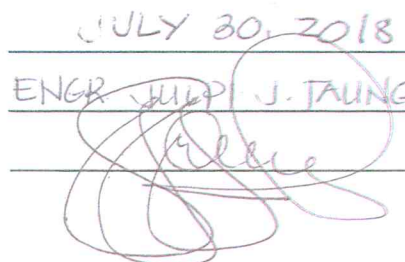 JULY 30, 2018
ENGR. JULPI J. TAUNG